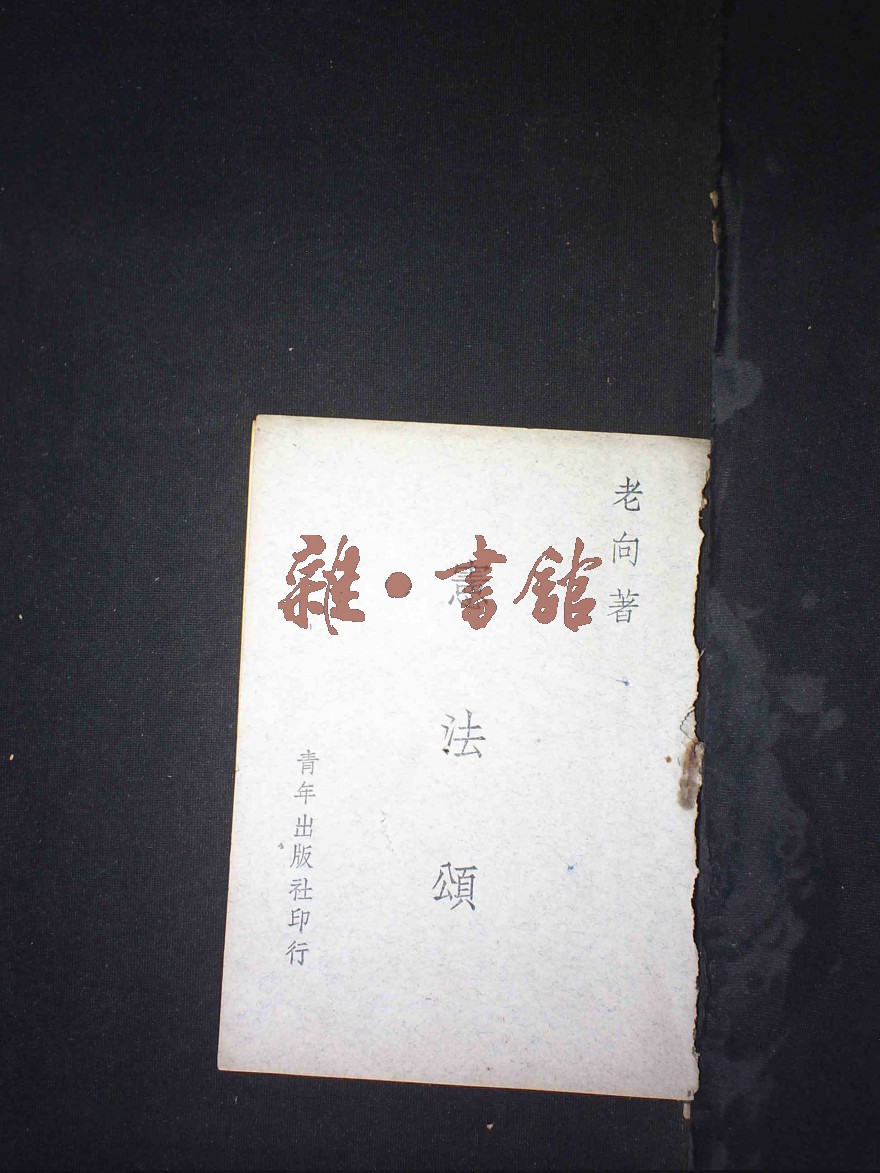 老向著
憲法頌
青年出版社印行
雜·書館